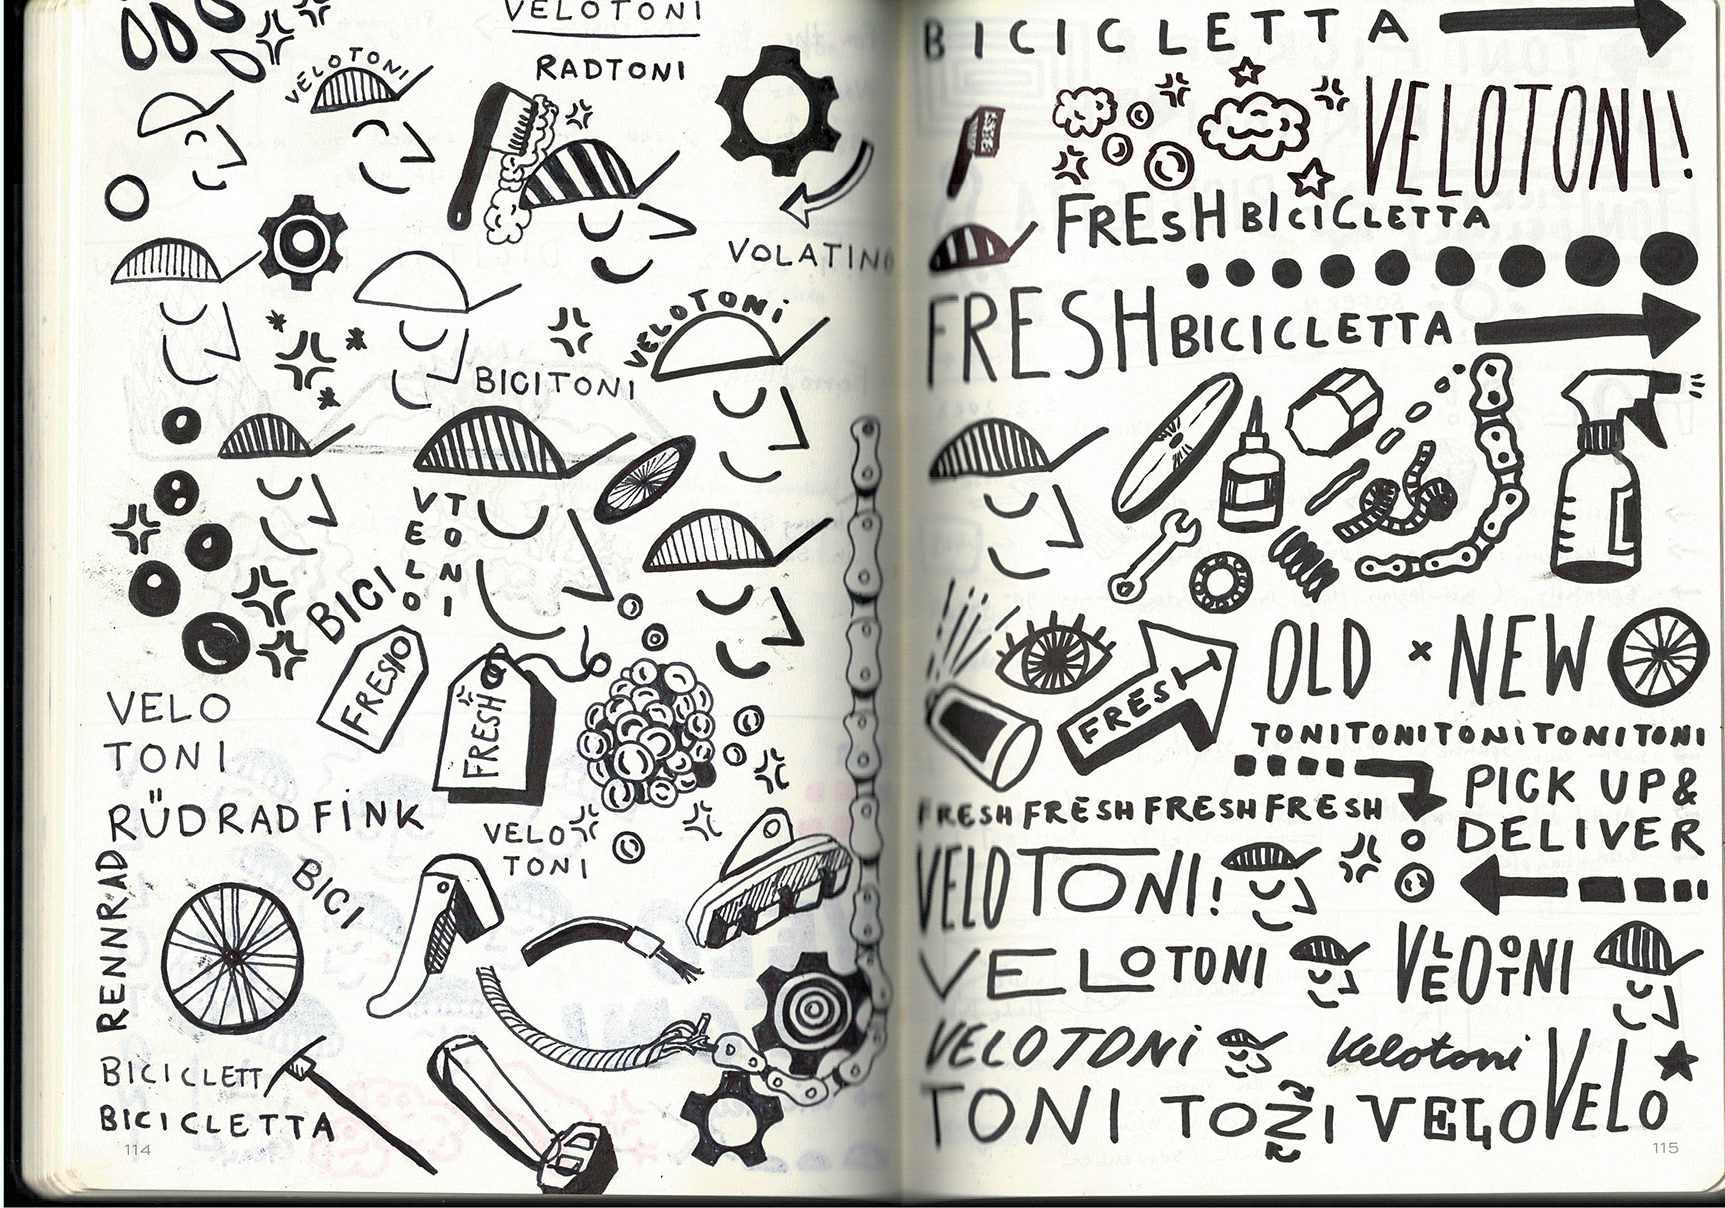 VELOTONI
RADTONI
VELOTONI
VOLATINO
VELOTONI
BICITONI
VELO
TONI
BICI
FRESIO
FRESH
VELO
TONI
RÜDRADFINK
VELO
TONI
RENNRAD
BICI
BICICLETT
BICICLETTA
114
BICICLETTA
VELOTONI!
FRESH BICICLETTA
FRESH BICICLETTA
FRESH
OLD × NEW
TONITONITONITONITONI
PICK UP &
DELIVER
FRESH FRESH FRESH FRESH
VELOTONI!
VELOTONI VELOTONI
VELOTONI Velotoni VELO
TONI TONI VELO
115